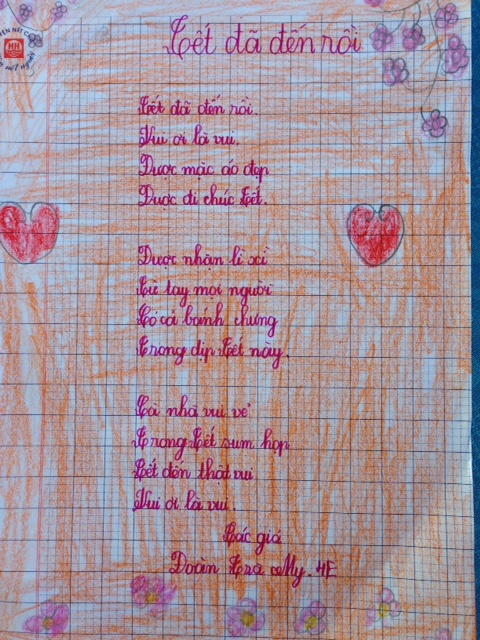 Tết đã đến rồi
Tết đã đến rồi.
Vui ơi là vui.
Được mặc áo đẹp
Được đi chúc Tết.
Được nhận lì xì
Từ tay mọi người
Có cả bánh chưng
Trong dịp Tết này.
Cả nhà vui vẻ
Trong Tết sum họp
Tết đến thật vui
Vui ơi là vui.
Các giả
Đoàn Trà My. 4E